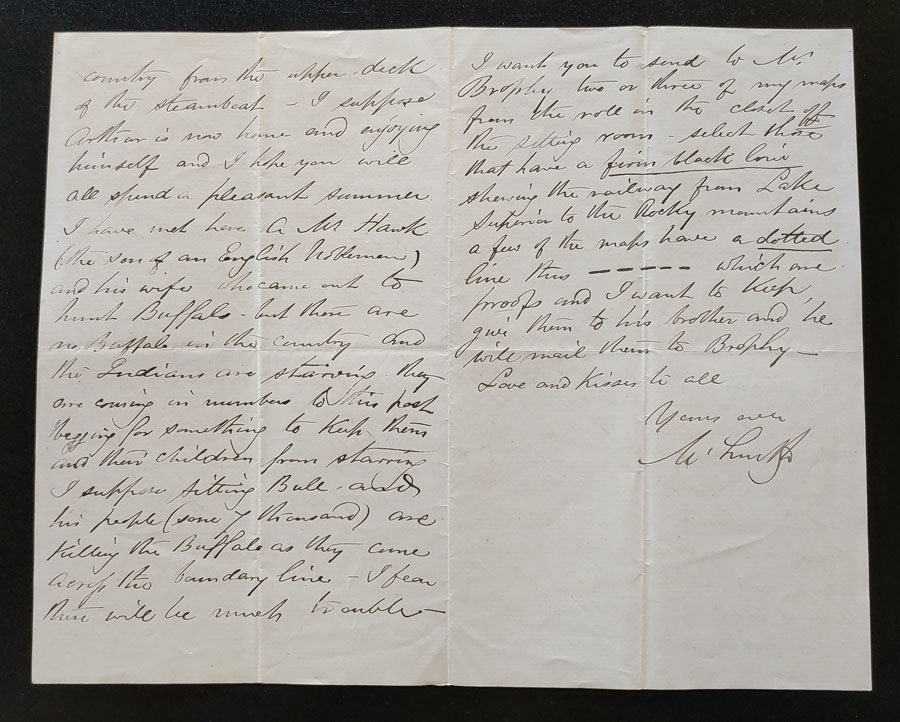 country from the upper deck
of the steamboat - I suppose
Arthur is now home and enjoying
himself and I hope you will
all spend a pleasant summer.
I have met here a Mr Hawk
(the son of an English Nobleman)
and his wife who came out to
hunt Buffalo - but there are
no Buffalo in the country and
the Indians are starving they
are coming in numbers to this post
begging for something to keep them
and their children from starving
I suppose Sitting Bull and
his people (some 7 thousand) are
killing the Buffalo as they come
across the boundary line - I fear
there will be much trouble -
I want you to send to Mr
Brophy two or three of my maps
from the roll in the closet off
the sitting room - select those
that have a firm black line
shewing the railway from Lake
Superior to the Rocky mountains
a few of the maps have a dotted
line thus ----- which are
proofs and I want to keep,
give them to his brother and he
will mail them to Brophy -
Love and Kisses to all
Yours ever